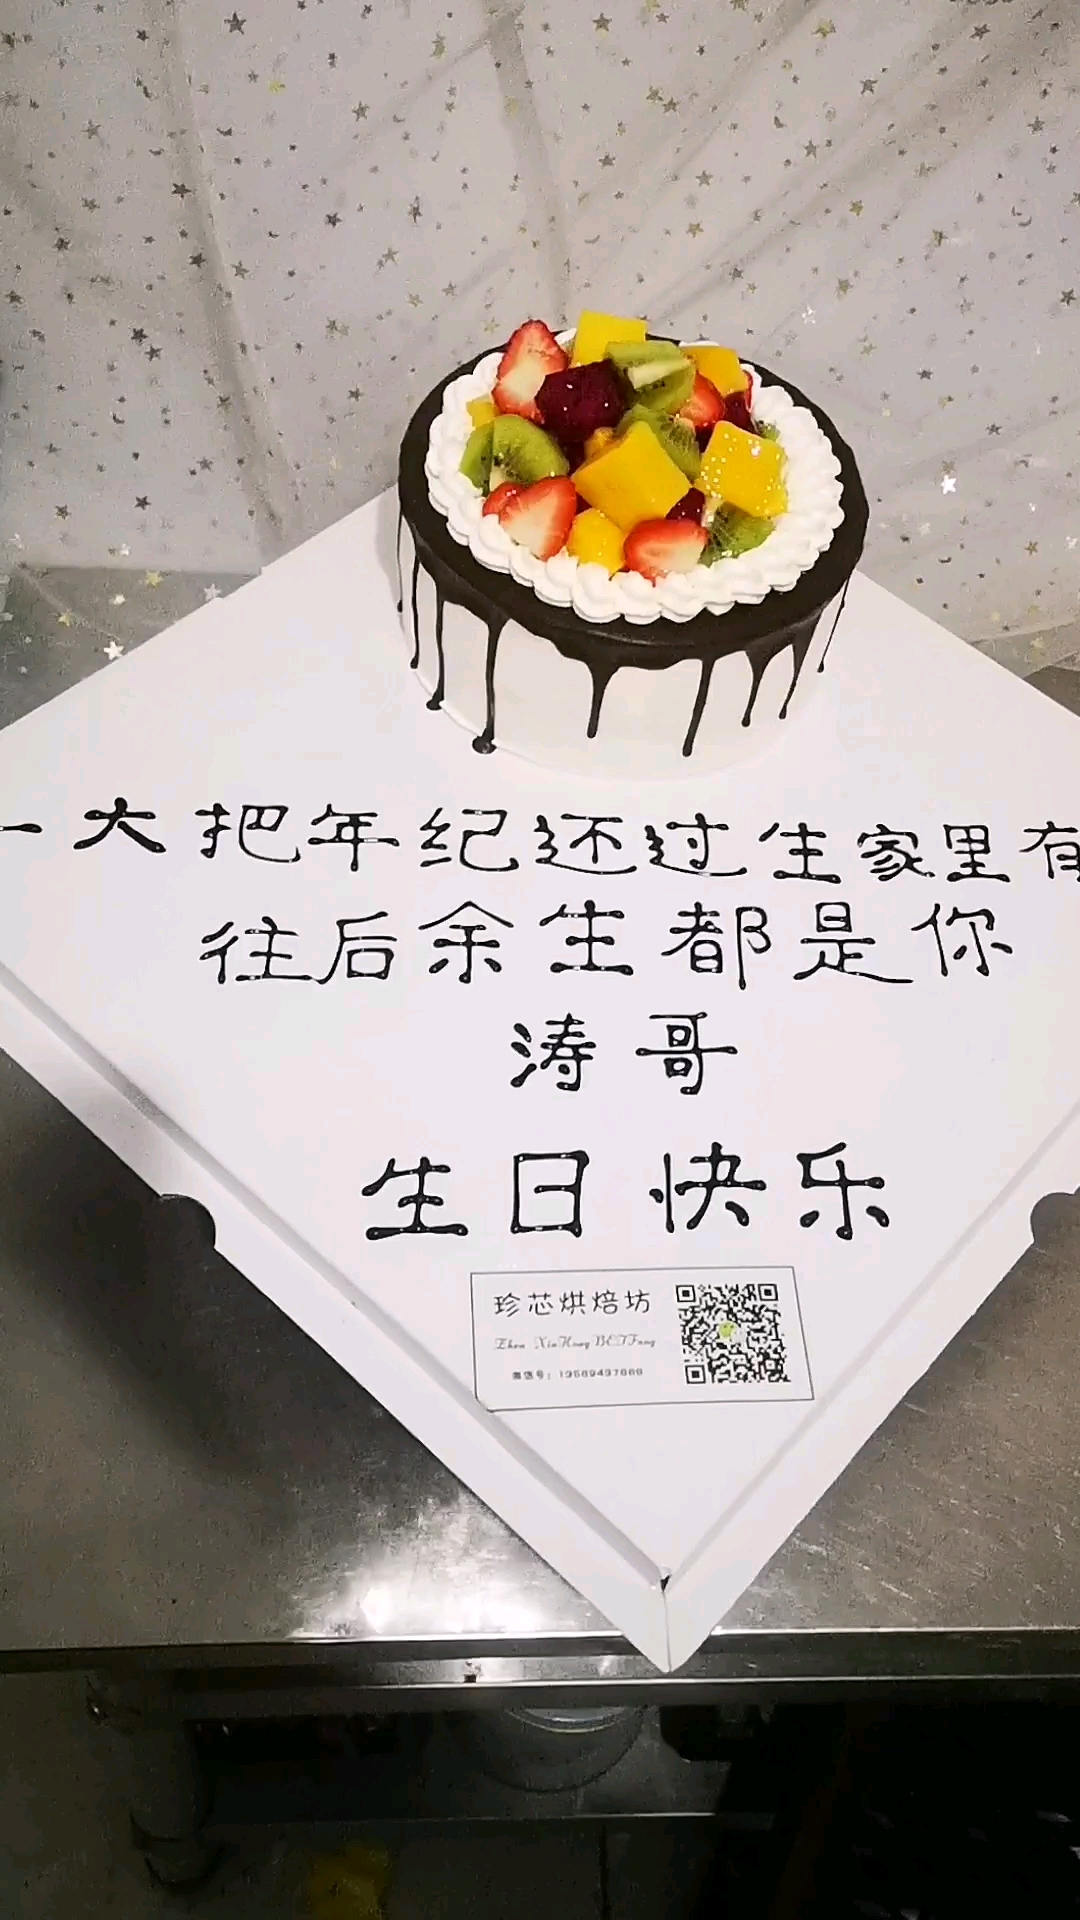 一大把年纪还过生家里有
往后余生都是你
涛哥
生日快乐
珍芯烘焙坊
Zhen XinHong BEIFang
微信号：